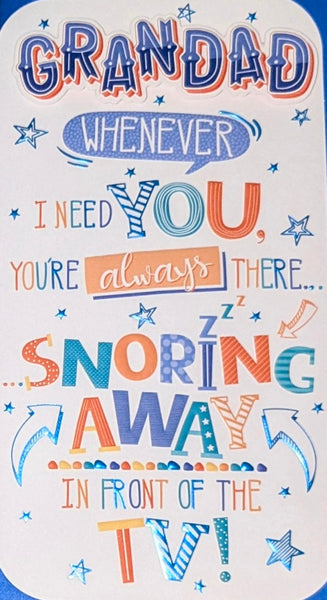 GRANDAD
WHENEVER
I NEED YOU,
YOU'RE always THERE...
zzz
...SNORING
AWAY
IN FRONT OF THE
TV!